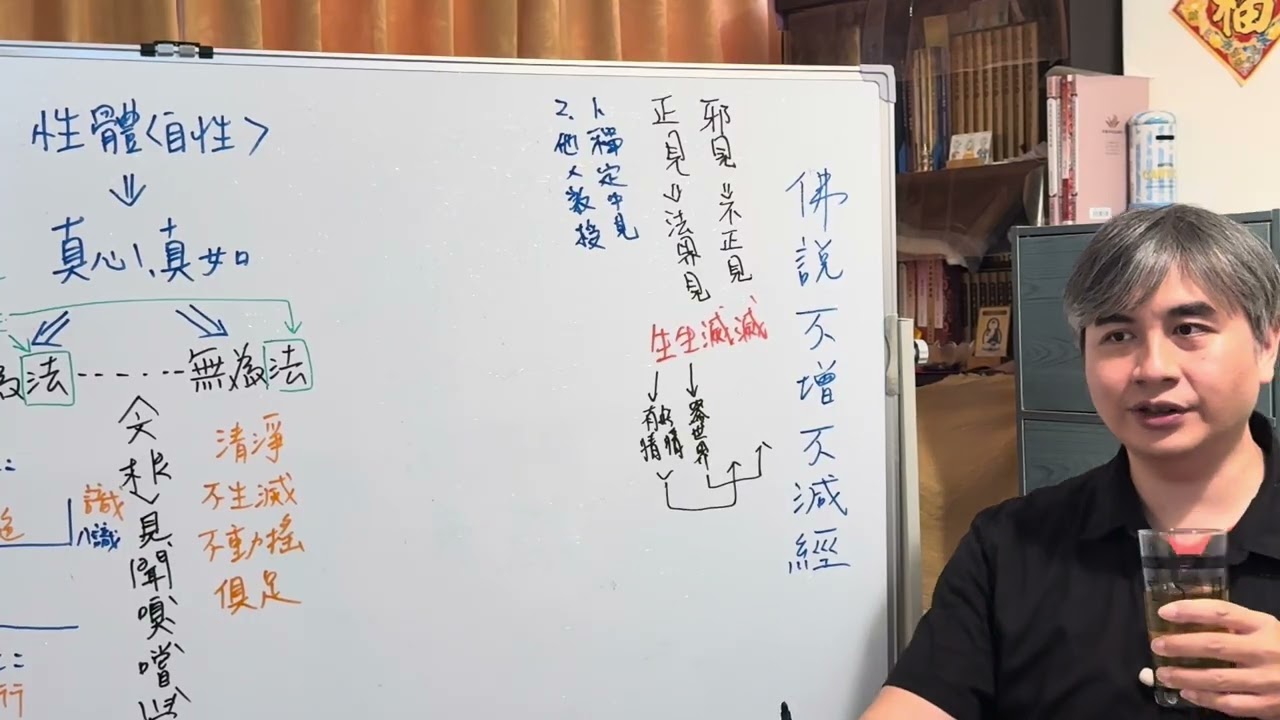 佛說不增不減經
邪見⇒不正見
正見⇒法界見
1、禪定中見
2、他人教授
生生滅滅
有情
器世界
性體<自性>
真心、真如
為法-----無為法
清淨
不生滅
不動搖
俱足
六根
見、聞、嗅、嚐、
識
八識
行
福